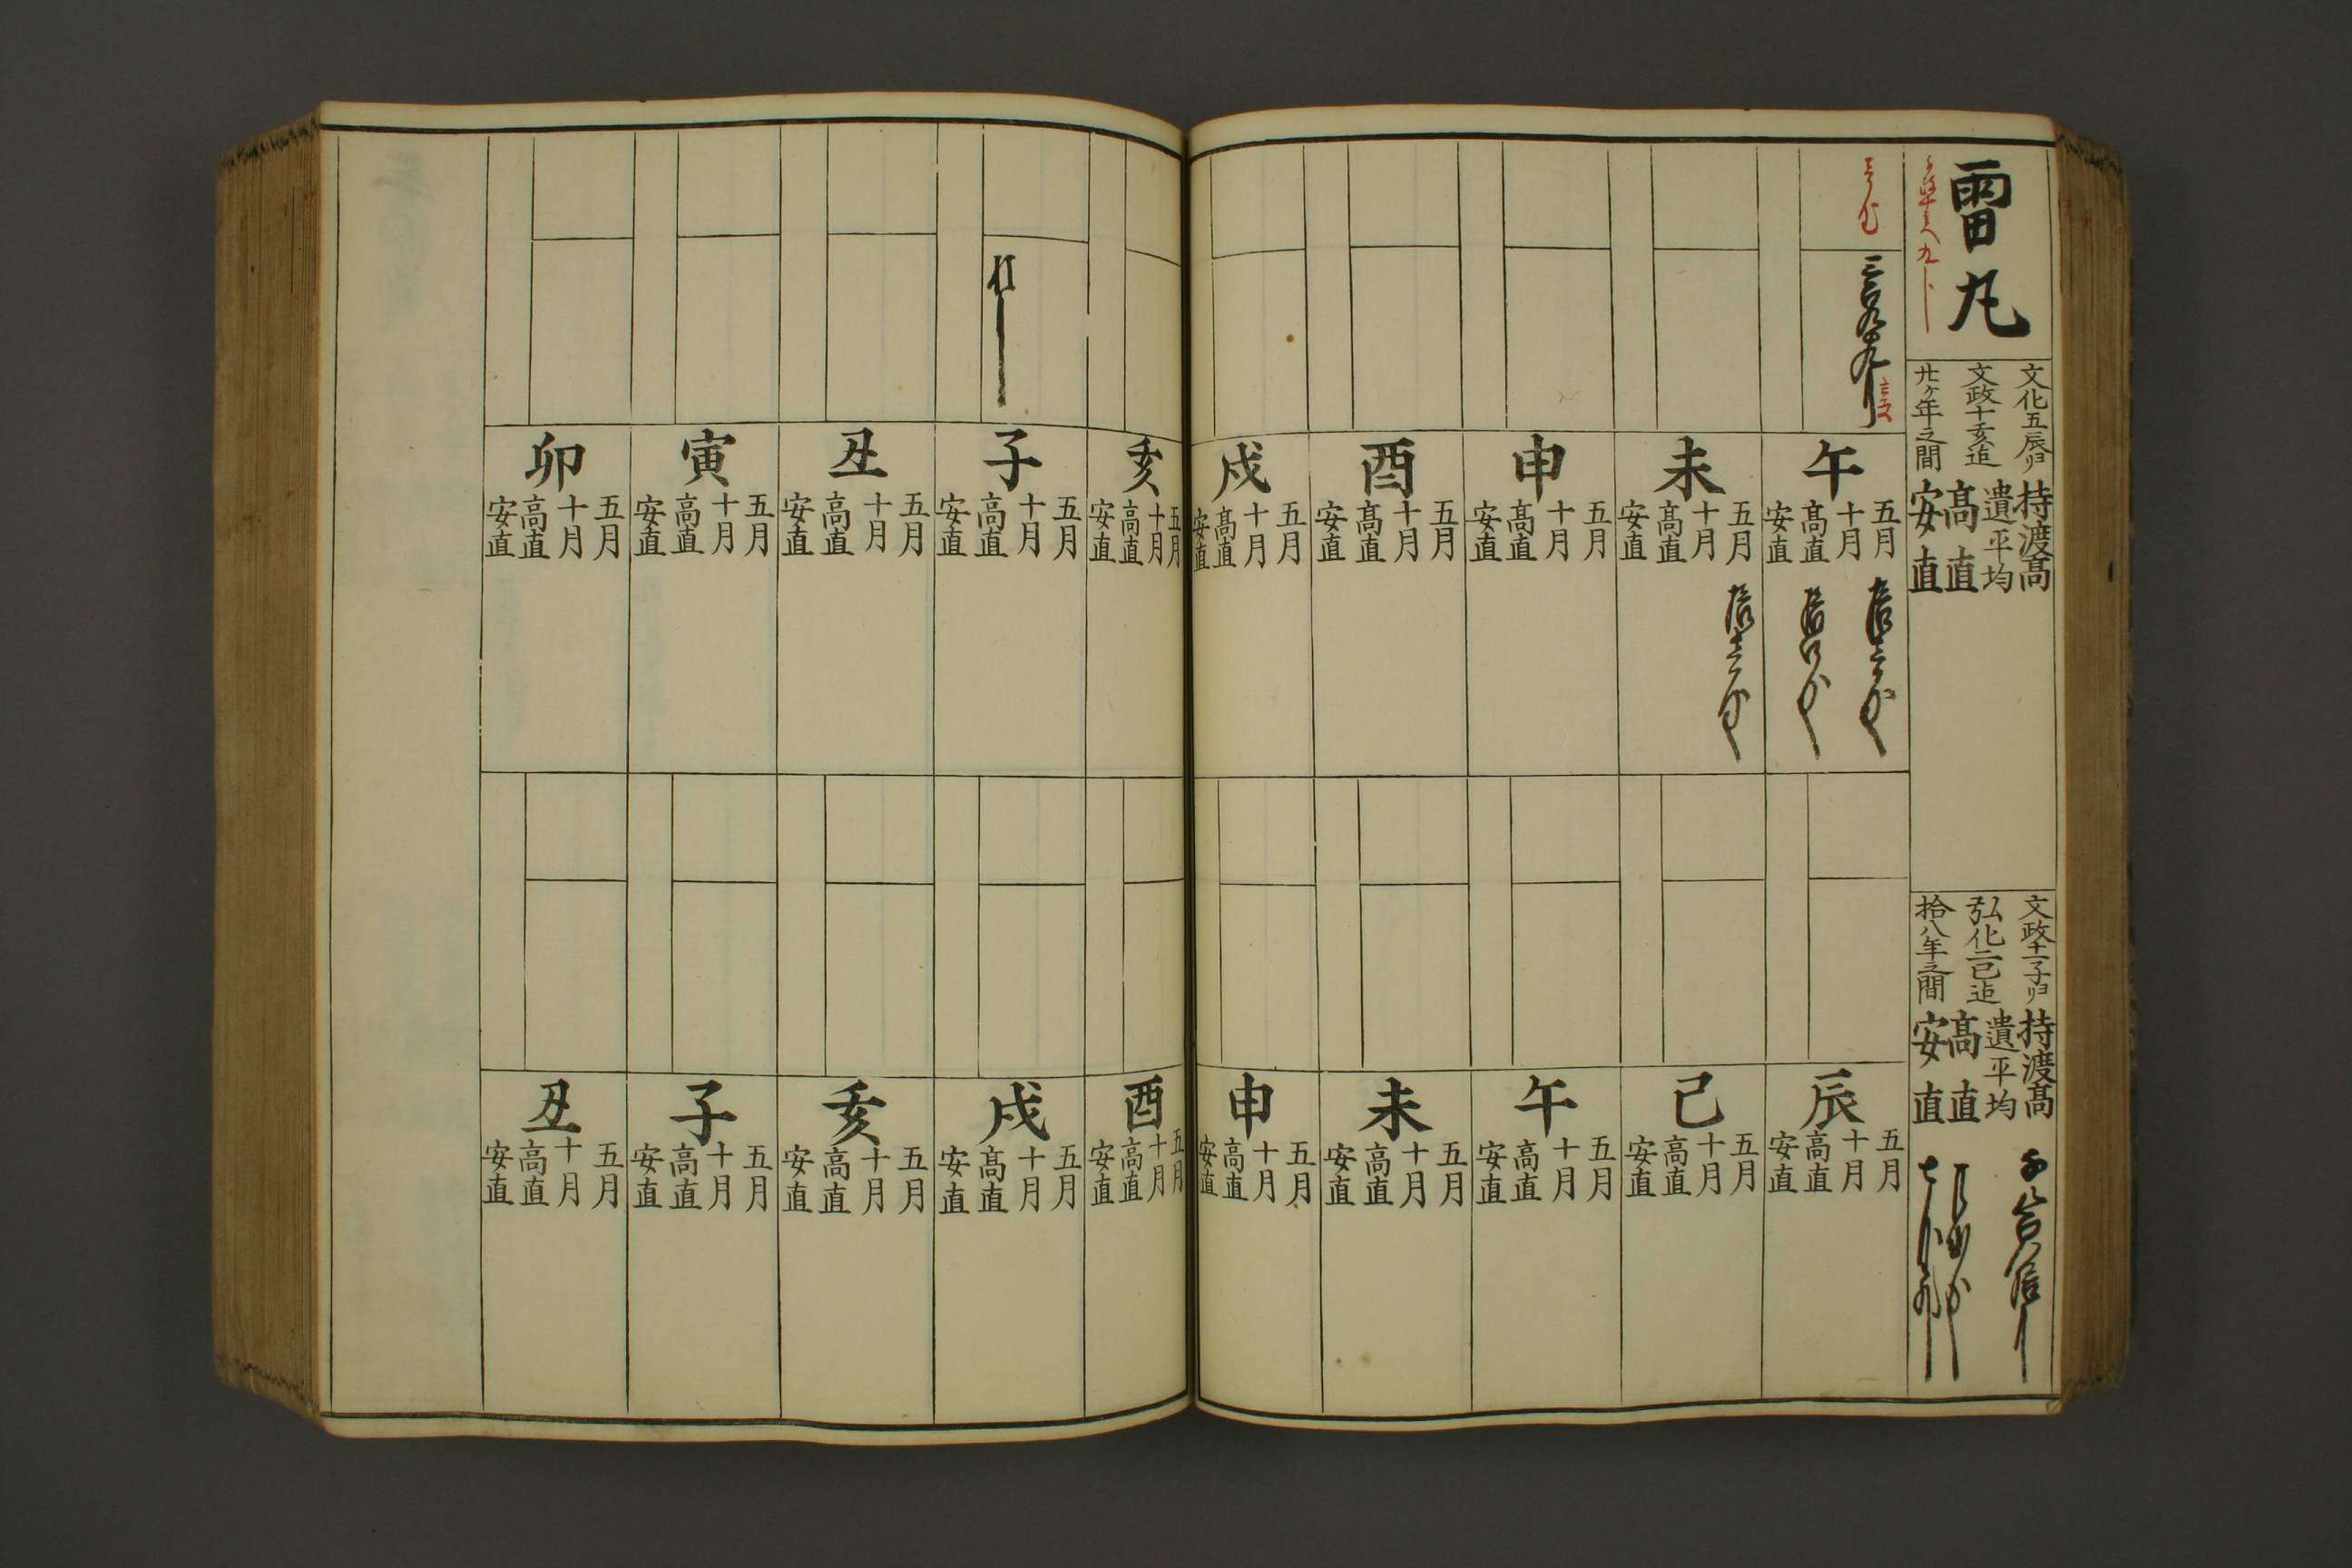 雷丸
文化五辰ヨリ
文政十亥迄
廿ケ年之間
持渡髙
遺平均
髙直
安直
文政十一子ヨリ
弘化二巳迄
拾八年之間
持渡髙
遺平均
髙直
安直
午
五月
十月
髙直
安直
未
五月
十月
髙直
安直
申
五月
十月
髙直
安直
酉
五月
十月
髙直
安直
戌
五月
十月
髙直
安直
亥
五月
十月
髙直
安直
子
五月
十月
髙直
安直
丑
五月
十月
髙直
安直
寅
五月
十月
髙直
安直
卯
五月
十月
髙直
安直
辰
五月
十月
髙直
安直
巳
五月
十月
髙直
安直
午
五月
十月
髙直
安直
未
五月
十月
髙直
安直
申
五月
十月
髙直
安直
酉
五月
十月
髙直
安直
戌
五月
十月
髙直
安直
亥
五月
十月
髙直
安直
子
五月
十月
髙直
安直
丑
五月
十月
髙直
安直